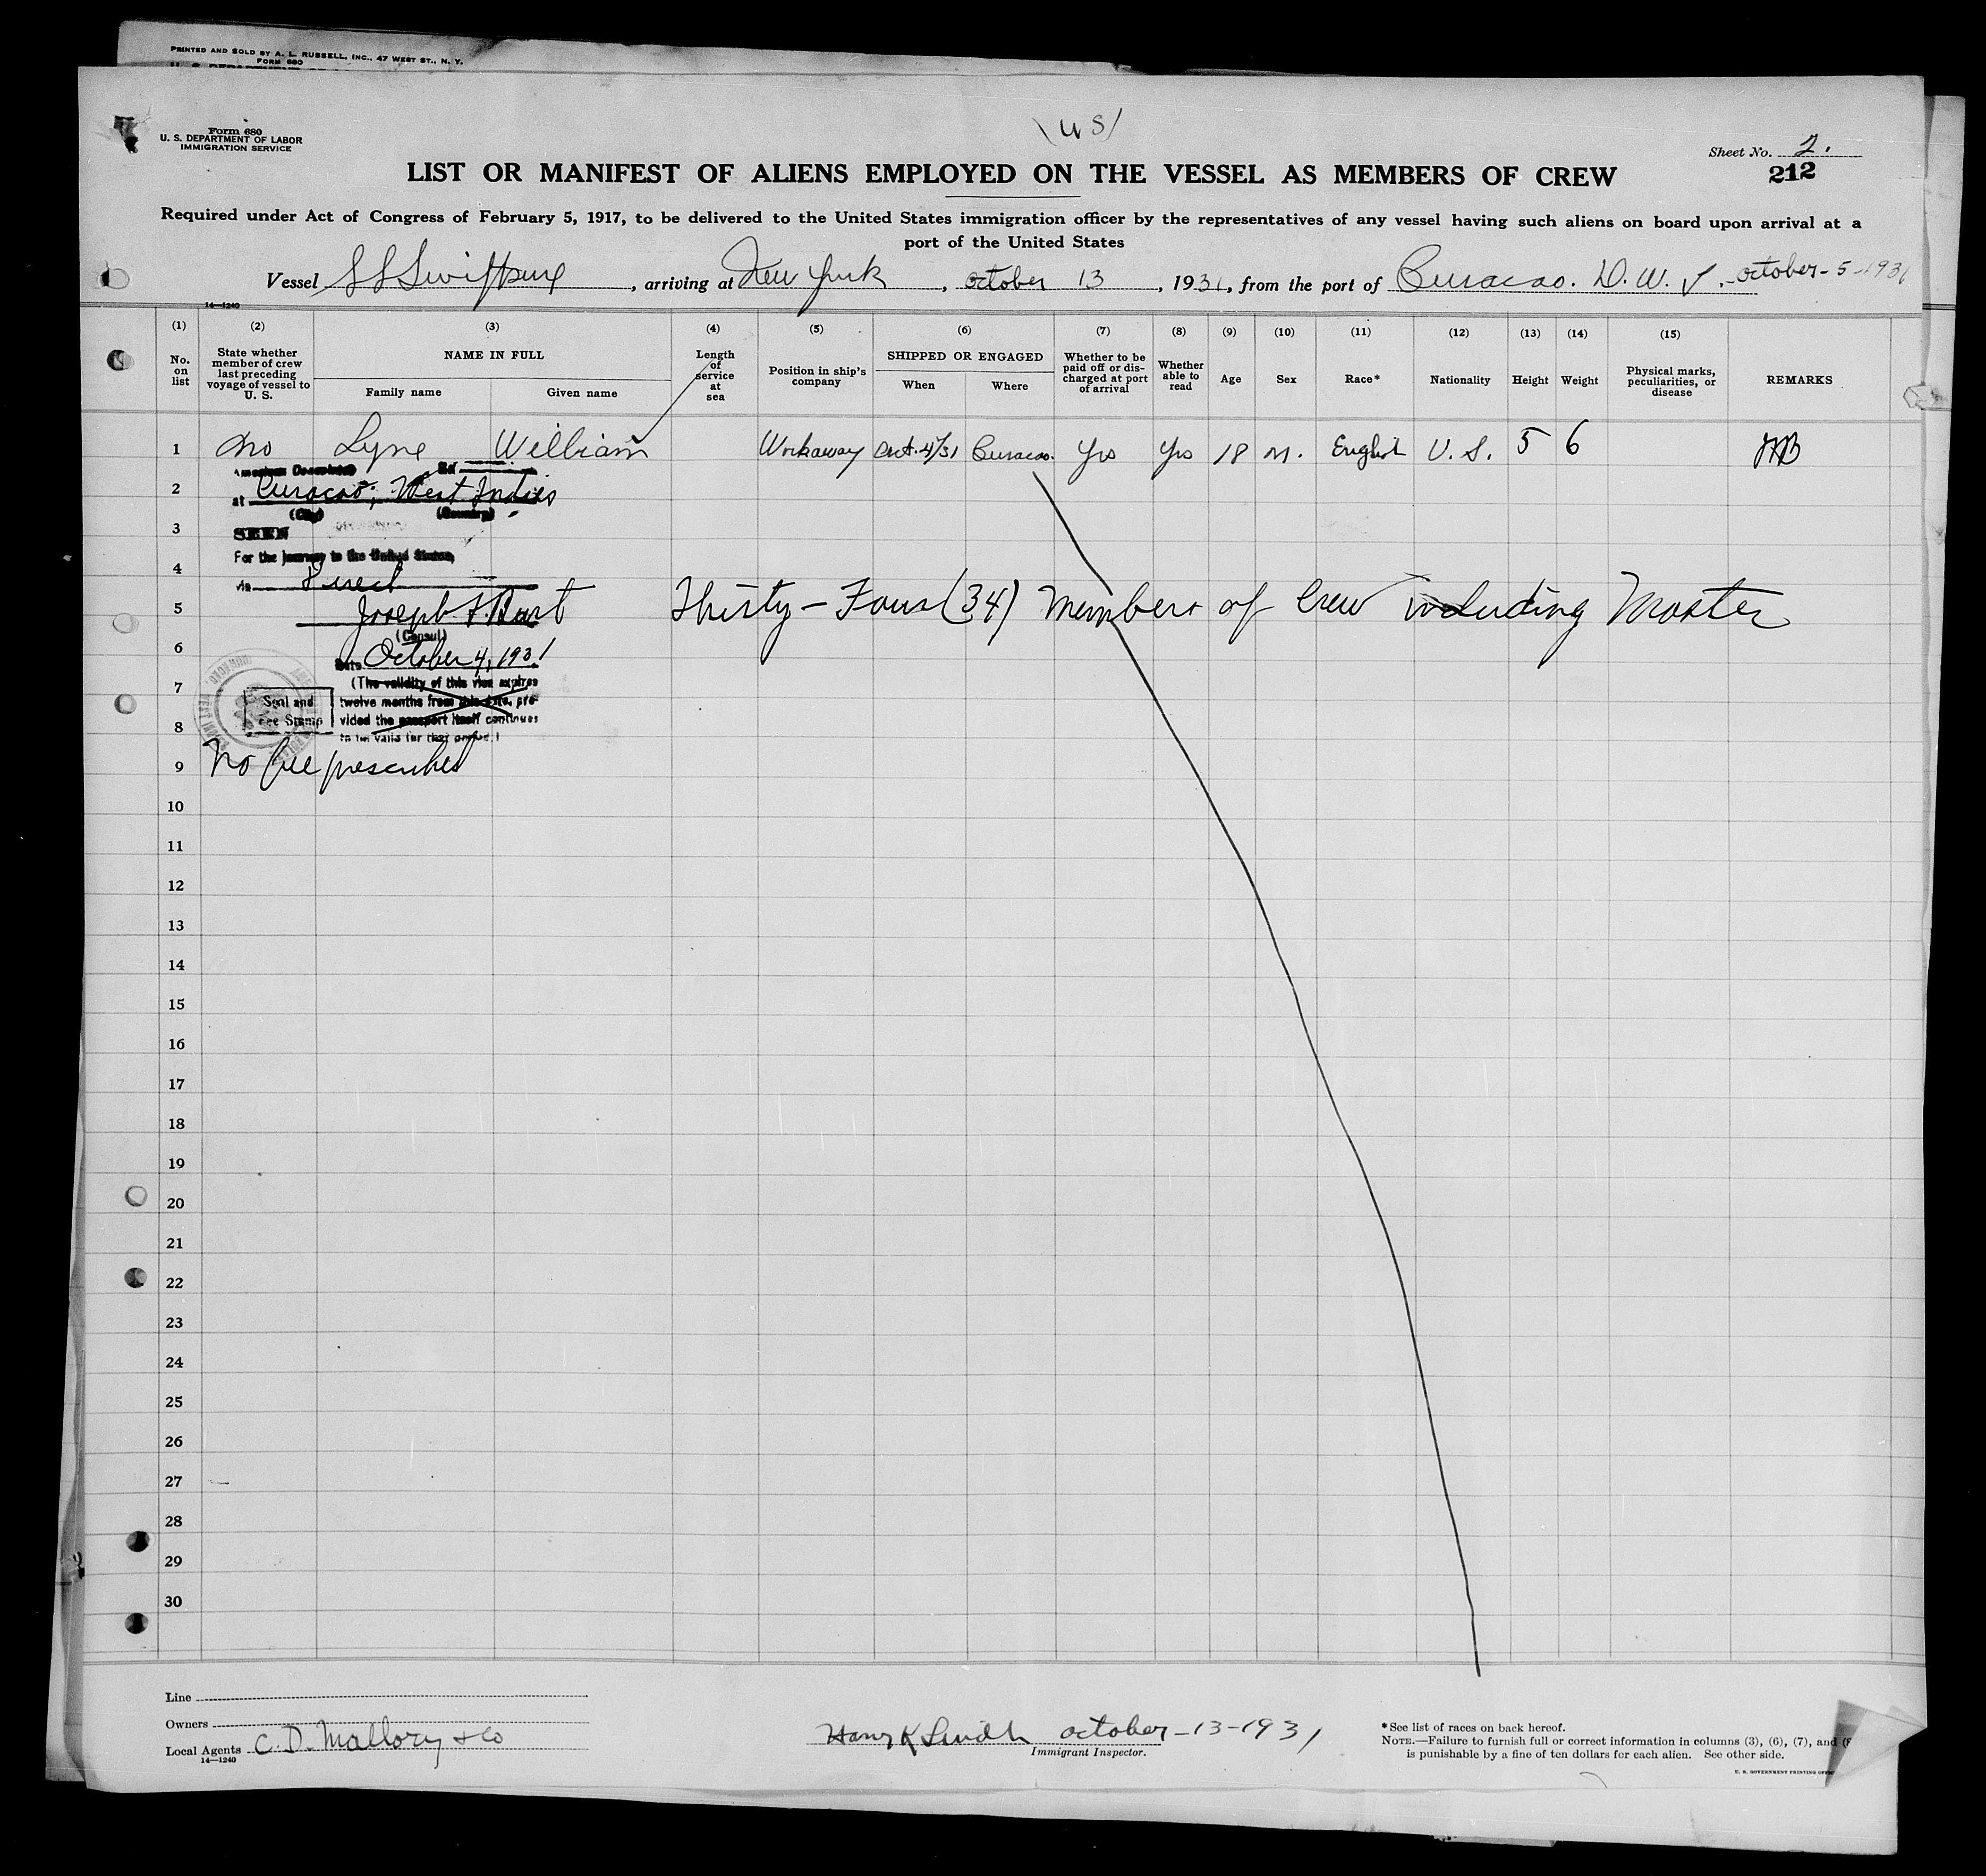 PRINTED AND SOLD BY A. L. RUSSELL, INC., 47 WEST ST., N. Y.
FORM 680
Form 680
U. S. DEPARTMENT OF LABOR
IMMIGRATION SERVICE
(US)
Sheet No. 2.
212
LIST OR MANIFEST OF ALIENS EMPLOYED ON THE VESSEL AS MEMBERS OF CREW
Required under Act of Congress of February 5, 1917, to be delivered to the United States immigration officer by the representatives of any vessel having such aliens on board upon arrival at a
port of the United States
Vessel SS Swiftsure, arriving at New York, October 13, 1931, from the port of Curacao. D. W. I. - October - 5 - 1931
14—1240
(1) (2) (3) (4) (5) (6) (7) (8) (9) (10) (11) (12) (13) (14) (15)
No. on list
State whether member of crew last preceding voyage of vessel to U. S.
NAME IN FULL
Family name Given name
Length of service at sea
Position in ship's company
SHIPPED OR ENGAGED
When Where
Whether to be paid off or discharged at port of arrival
Whether able to read
Age Sex Race* Nationality Height Weight
Physical marks, peculiarities, or disease
REMARKS
1 no Lyne William Workaway Oct. 4/31 Curacao. Yes Yes 18 M. English U. S. 5 6
2
at Curacao, West Indies
(City) (Country)
3
SEEN
For the journey to the United States,
4
via Direct
5
Thirty-Four (34) Members of Crew including Master
(Consul)
6
Date October 4, 1931
7
(The validity of this visa expires
twelve months from this date, pro-
vided the passport itself continues
to be valid for that period.)
Seal and
Fee Stamp
8
9
No fee prescribed
10
11
12
13
14
15
16
17
18
19
20
21
22
23
24
25
26
27
28
29
30
Line
Owners
Local Agents C. D. Mallory & Co
14—1240
October - 13 - 1931
Immigrant Inspector.
*See list of races on back hereof.
NOTE.—Failure to furnish full or correct information in columns (3), (6), (7), and (8
is punishable by a fine of ten dollars for each alien. See other side.
U. S. GOVERNMENT PRINTING OFFI